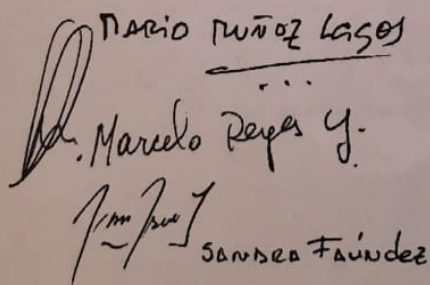 MARIO MUÑOZ LAGOS
...
Marcelo Reyes Y.
SANDRA FAÚNDEZ